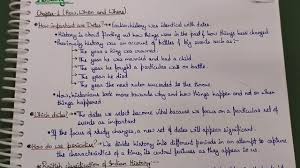 Chapter-1 (How, When and Where)
How important are Dates? → Earlier history was identical with dates.
History is about finding how were in the past & how things have changed.
Previously history was an account of battles & big events such as:-
→ The year a king was crowned
→ The year he was married and had a child
→ The year he fought a particular call on battle
→ The year he died
→ The year the next ruler succeeded to throne.
Now, historians look more towards why and how things happen and not on when
things happened
Which dates? → The dates we select become vital because we focus on a particular set of
events as important
If the focus of study changes, a new set of dates will appear significant.
How do we periodise? → We divide history into different periods in an attempt to capture
the characteristics of a time, its central features as they appear to us.
British classification of Indian History